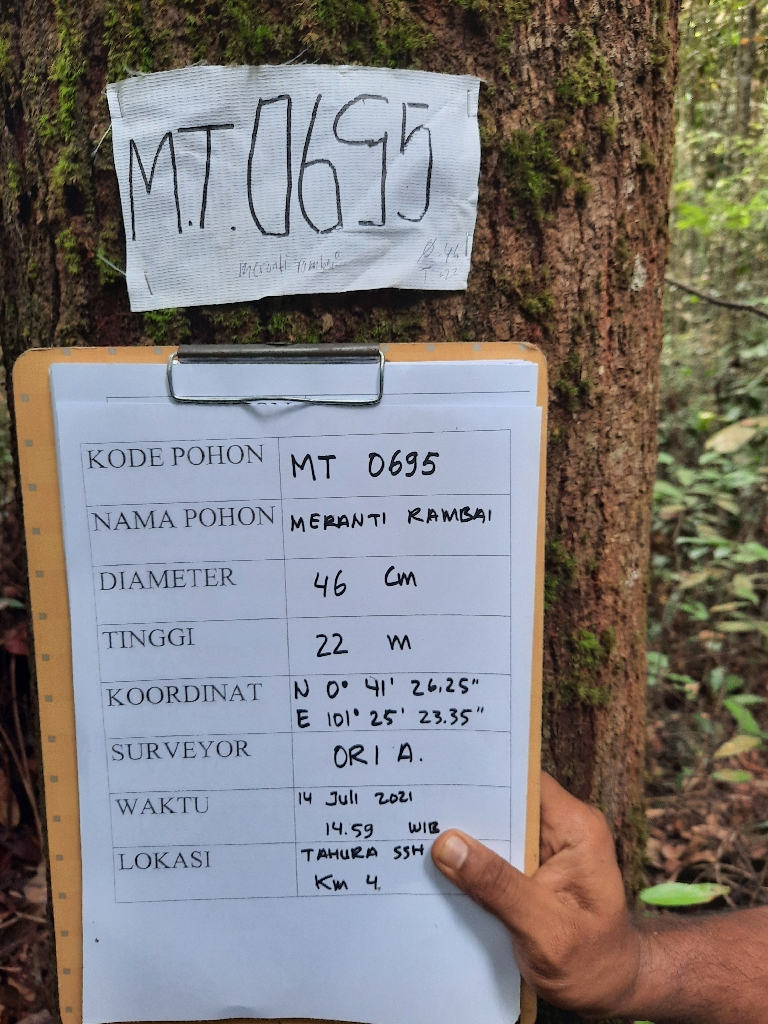 M.T. 0695
meranti rambai
KODE POHON MT 0695
NAMA POHON MERANTI RAMBAI
DIAMETER 46 Cm
TINGGI 22 m
KOORDINAT N 0° 41' 26.25"
E 101° 25' 23.35"
SURVEYOR ORI A.
WAKTU 14 Juli 2021
14.59 WIB
LOKASI TAHURA SSH
Km 4.